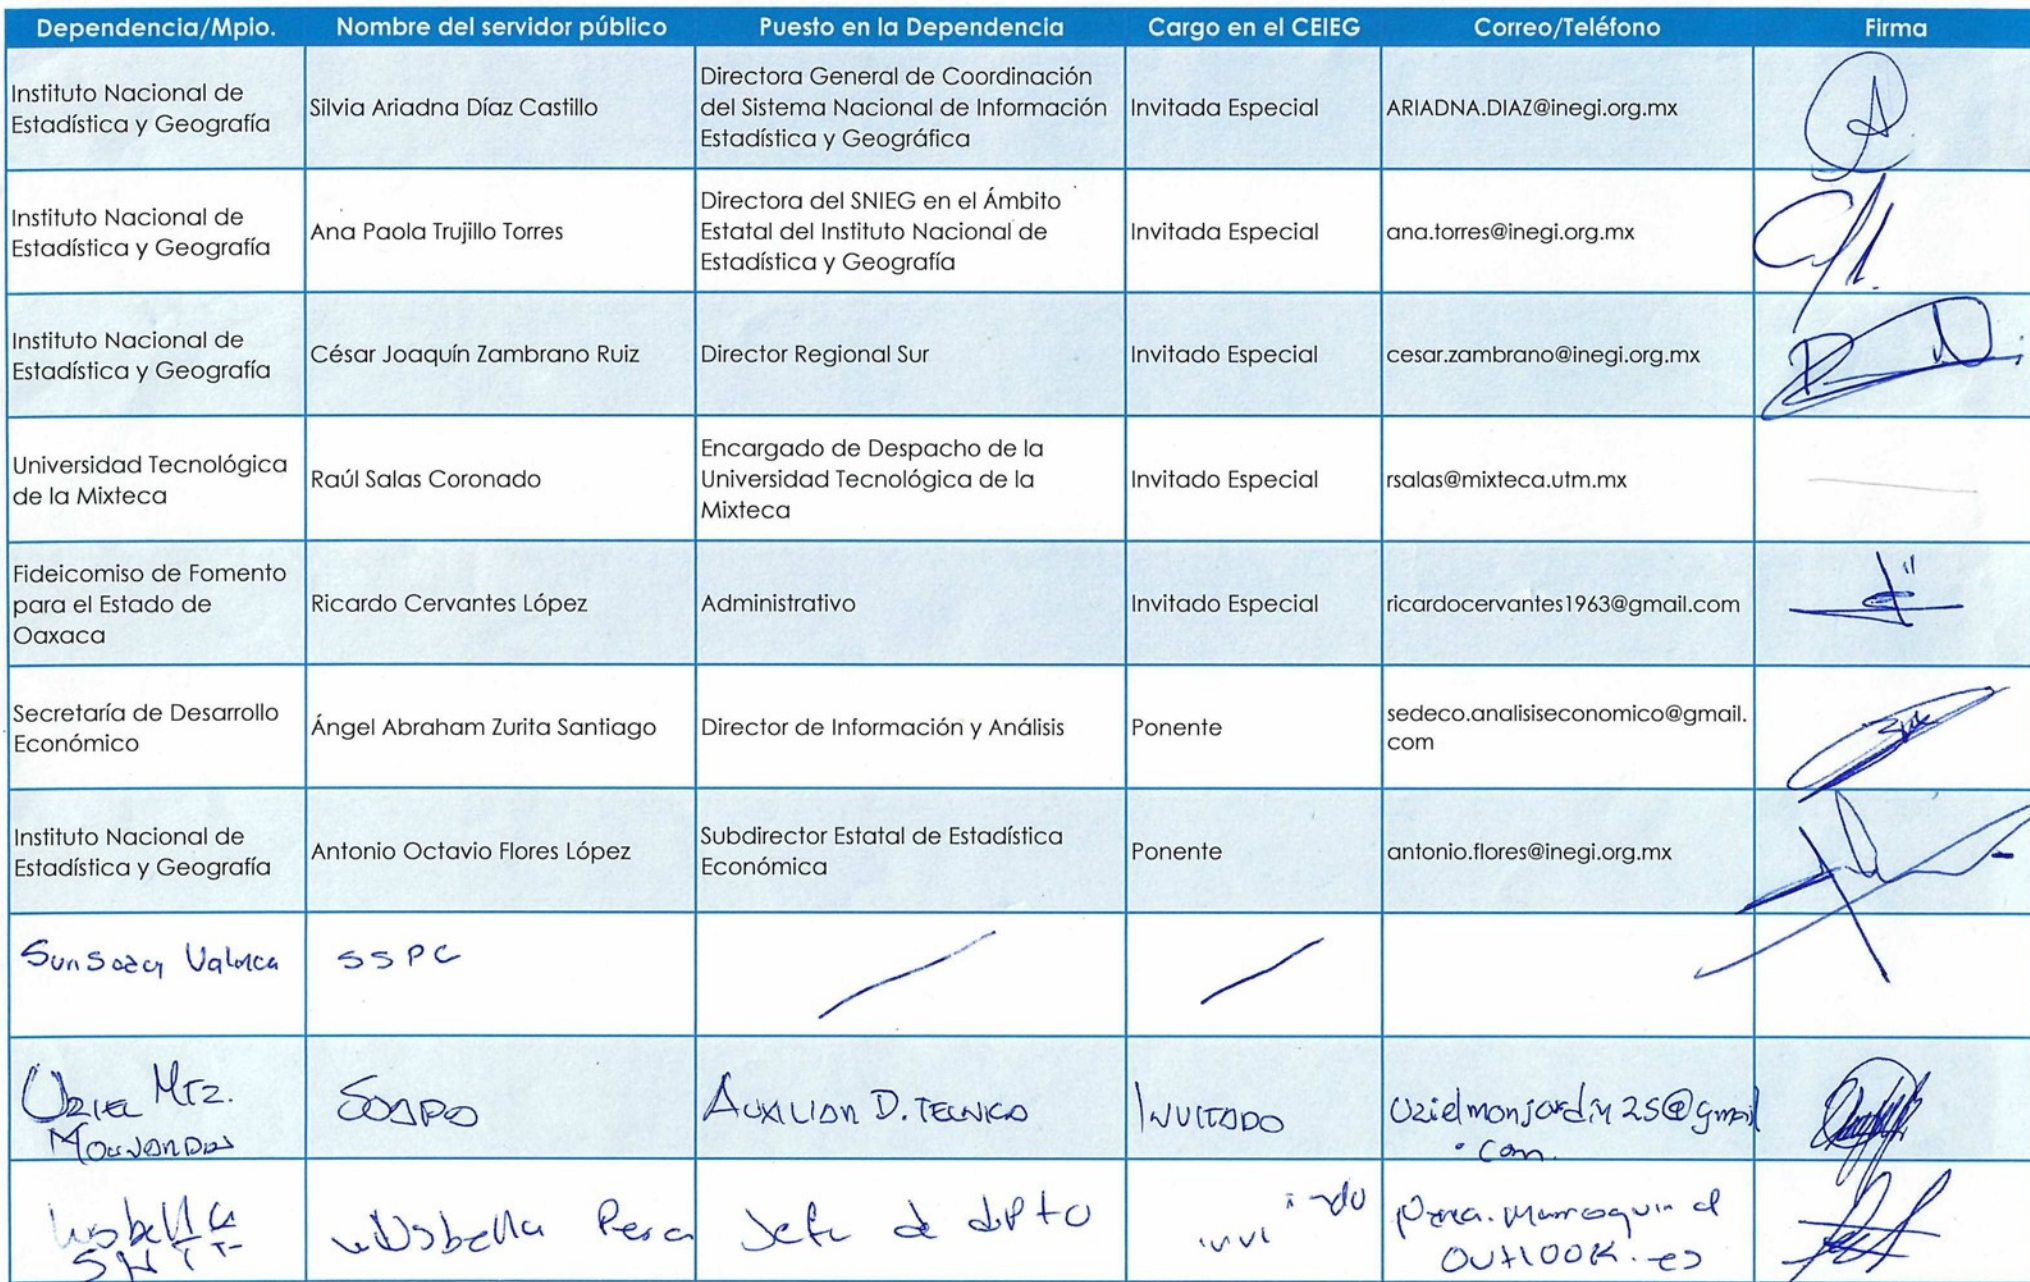 Dependencia/Mpio. Nombre del servidor público Puesto en la Dependencia Cargo en el CEIEG Correo/Teléfono Firma
Instituto Nacional de
Estadística y Geografía
Silvia Ariadna Díaz Castillo
Directora General de Coordinación
del Sistema Nacional de Información
Estadística y Geográfica
Invitada Especial
ARIADNA.DIAZ@inegi.org.mx
Instituto Nacional de
Estadística y Geografía
Ana Paola Trujillo Torres
Directora del SNIEG en el Ámbito
Estatal del Instituto Nacional de
Estadística y Geografía
Invitada Especial
ana.torres@inegi.org.mx
Instituto Nacional de
Estadística y Geografía
César Joaquín Zambrano Ruiz
Director Regional Sur
Invitado Especial
cesar.zambrano@inegi.org.mx
Universidad Tecnológica
de la Mixteca
Raúl Salas Coronado
Encargado de Despacho de la
Universidad Tecnológica de la
Mixteca
Invitado Especial
rsalas@mixteca.utm.mx
Fideicomiso de Fomento
para el Estado de
Oaxaca
Ricardo Cervantes López
Administrativo
Invitado Especial
ricardocervantes1963@gmail.com
Secretaría de Desarrollo
Económico
Ángel Abraham Zurita Santiago
Director de Información y Análisis
Ponente
sedeco.analisiseconomico@gmail.
com
Instituto Nacional de
Estadística y Geografía
Antonio Octavio Flores López
Subdirector Estatal de Estadística
Económica
Ponente
antonio.flores@inegi.org.mx
SSPC
Uziel Mtz.
SOAPO
Auxiliar D. Tecnico
Invitado
uzielmonjardin25@gmail
.com
Jefe de dpto
outlook.es